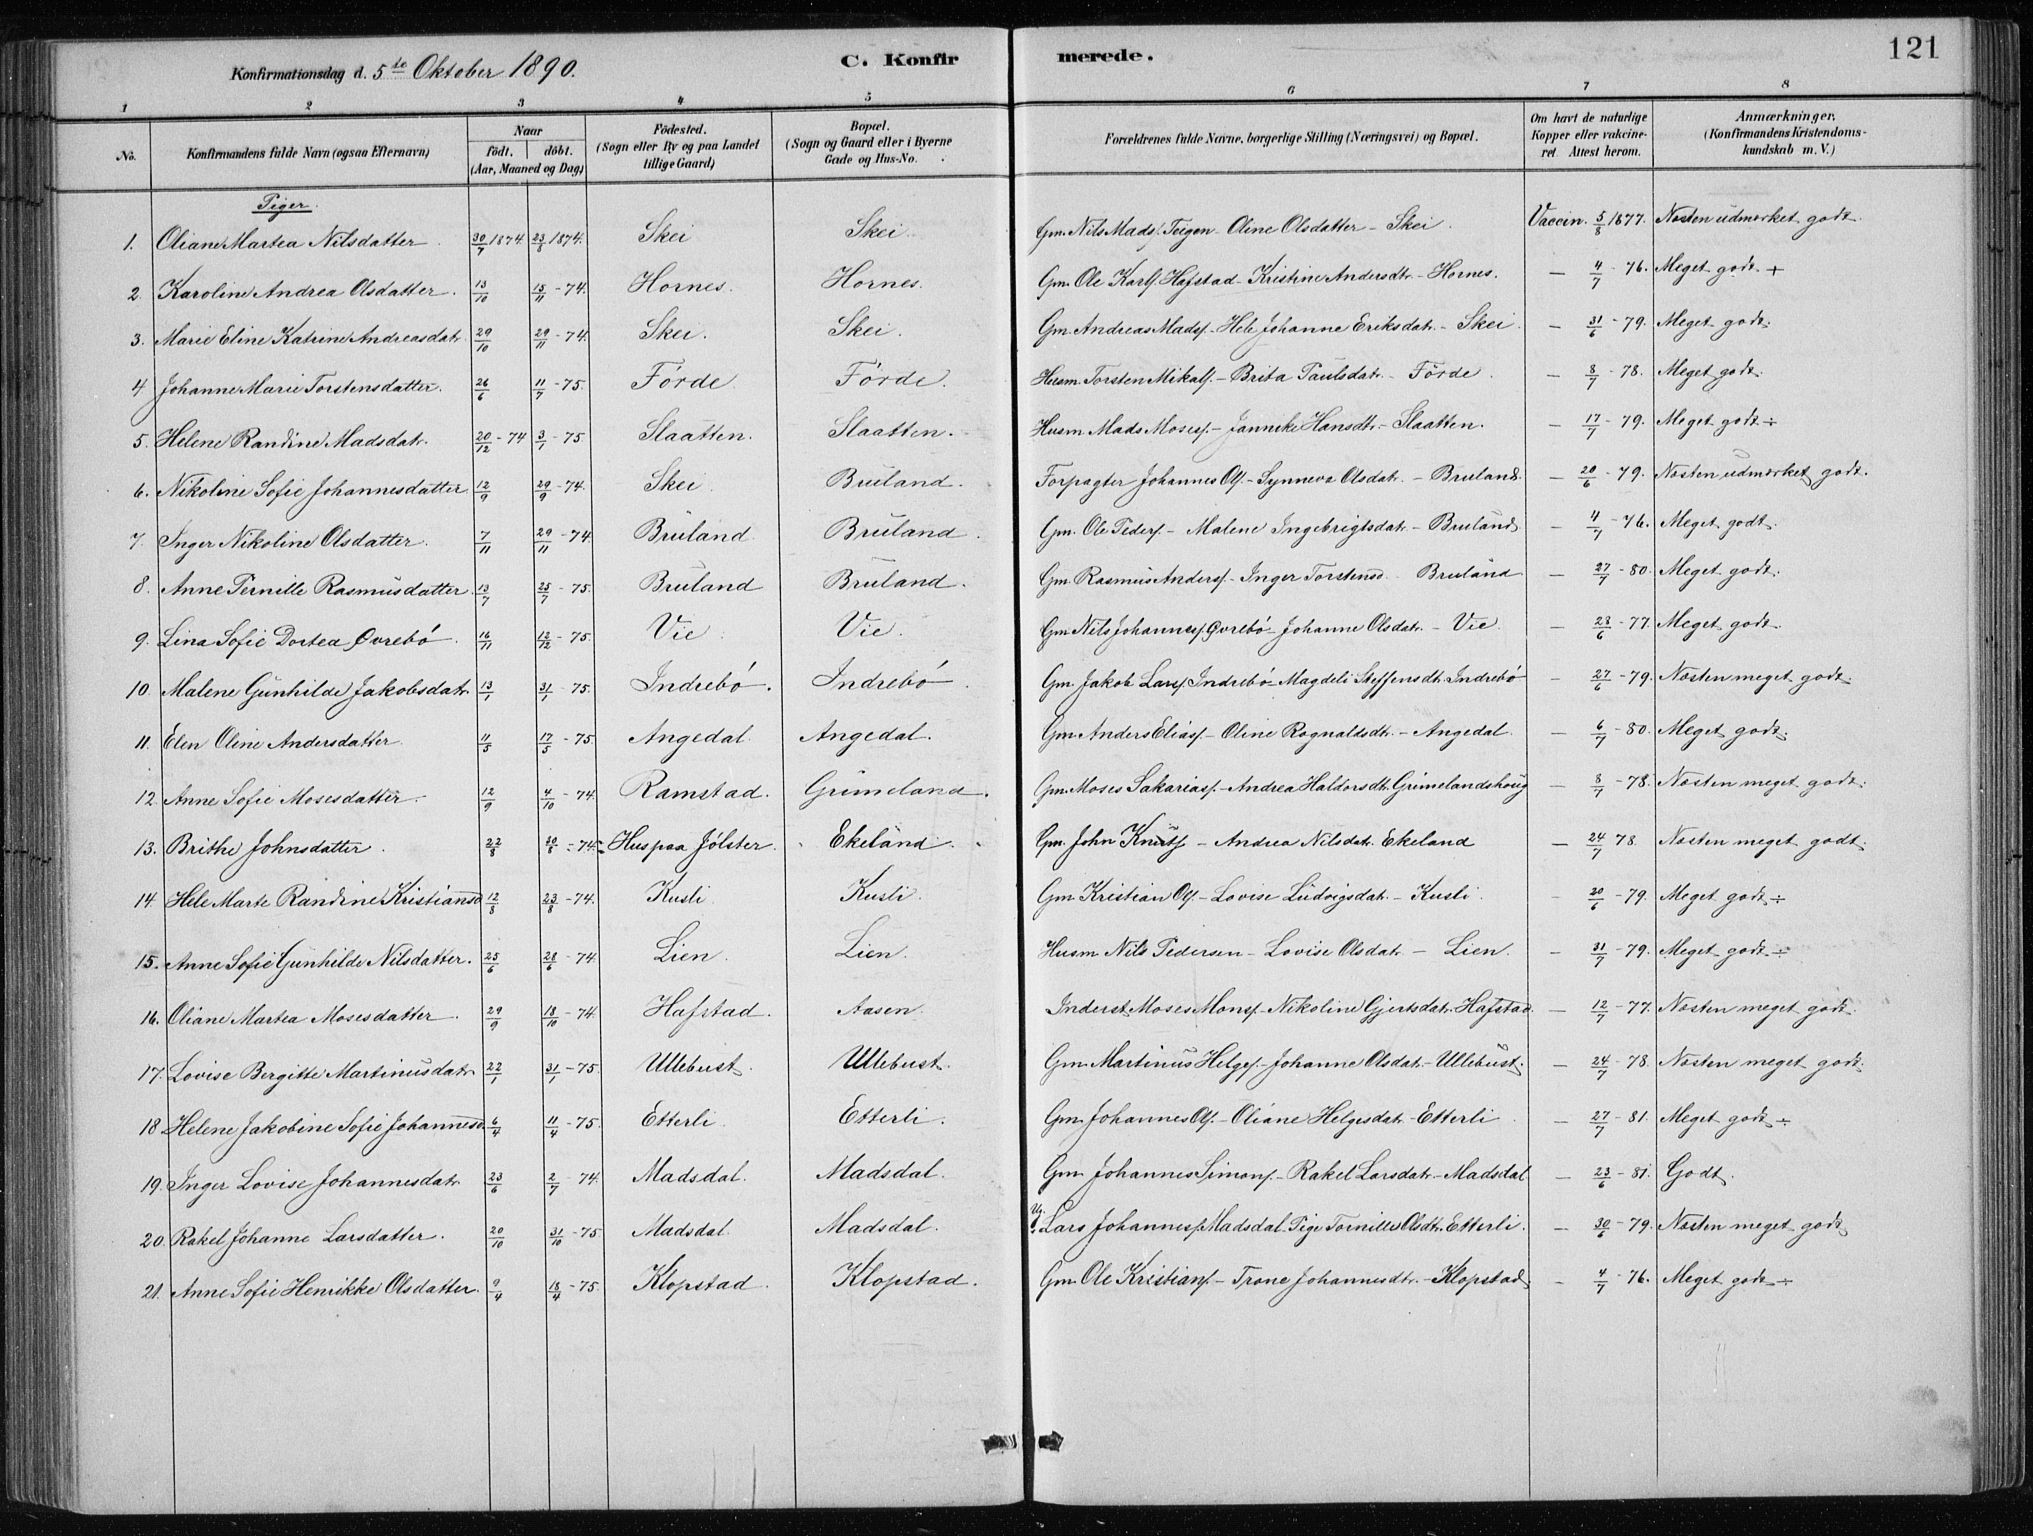 121
Konfirmationsdag d. 5te Oktober 1890. C. Konfirmerede.
1 2 3 4 5 6 7 8
No. Konfirmandens fulde Navn (ogsaa Efternavn) Naar født, døbt. (Aar, Maaned og Dag) Fødested. (Sogn eller By og paa Landet tillige Gaard) Bopæl. (Sogn og Gaard eller i Byerne Gade og Hus-No. Forældrenes fulde Navne, borgerlige Stilling (Næringsvei) og Bopæl. Om havt de naturlige Kopper eller vakcineret. Attest herom. Anmærkninger. (Konfirmandens Kristendomskundskab m. V.)
Piger.
1. Oliane Martea Nilsdatter 30/7 1874 23/8 1874. Skei Skei Gm. Nils Mads. Teigen - Oline Olsdatter - Skei. Vaccin. 5/8 1877. Næsten udmærket godt.
2. Karoline Andrea Olsdatter. 13/10 15/11 - 74. Hornes. Hornes. Gm. Ole Karls. Hafstad - Kristine Andersdtr. - Hornes. — 4/7 - 76. Meget godt +
3. Marie Eline Katrine Andreasdatr 29/10 29/11 - 74. Skei. Skei. Gm. Andreas Mads. - Hele Johanne Eriksdatr. - Skei. — 31/6 - 79. Meget godt.
4 Johanne Marie Torstensdatter. 26/6 11/7 - 75. Förde Förde. Husm. Torsten Mikals. - Brita Paulsdatr. - Förde. — 8/7 - 78. Meget godt.
5. Helene Randine Madsdatr. 20/12 - 74 3/1 - 75 Slaatten. Slaatten. Husm Mads Moses. - Jannike Hansdtr. - Slaatten. — 17/7 - 79. Meget godt ÷
6. Nikoline Sofie Johannesdatter 12/9 29/9 - 74. Skei. Bruland. Forpagter Johannes Ols. - Synneva Olsdatr. - Bruland. — 20/6 - 79. Næsten udmærket godt.
7. Inger Nikoline Olsdatter. 7/11 29/11 - 74. Bruland Bruland. Gm. Ole Peders. - Malene Ingebrigtsdatr - Bruland — 4/7 - 76. Meget godt.
8. Anne Pernille Rasmusdatter. 13/7 25/7 - 75. Bruland Bruland. Gm. Rasmus Anders. - Inger Torstensd. - Bruland — 27/7 - 80. Meget godt.
9. Lina Sofie Dortea Øvrebö. 16/11 12/12 - 75. Vie Vie. Gm. Nils Johannes. Øvrebö - Johanne Olsdatr. - Vie. — 23/6 - 77. Meget godt.
10. Malene Gunhilde Jakobsdatr 13/1 31/1 - 75. Indrebö. Indrebö Gm. Jakob Lars. Indrebö - Magdeli Steffensdtr. Indrebö — 27/6 - 79. Næsten meget godt.
11. Elen Oline Andersdatter. 11/5 17/5 - 75. Angedal. Angedal. Gm. Anders Elias. - Oline Rognaldsdtr. - Angedal. — 6/7 - 80. Meget godt.
12. Anne Sofie Mosesdatter. 12/9 4/10 - 74. Ramstad. Grimeland. Gm. Moses Sakarias. - Andrea Haldorsdtr. Grimelandshoug — 8/7 - 78. Næsten meget godt.
13. Brithe Johnsdatter. 22/8 30/8 - 74. Hus paa Jölster. Ekeland. Gm. John Knuts. - Andrea Nilsdatr. Ekeland — 24/7 78. Næsten meget godt.
14. Hele Marte Randine Kristiansd 12/8 23/8 - 74. Kusli. Kusli. Gm. Kristian Ols. - Lovise Ludvigsdatr. - Kusli. 20/6 - 79. Meget godt ÷
15. Anne Sofie Gunhilde Nilsdatter. 25/6 28/6 - 74. Lien. Lien. Husm Nils Pedersen - Lovise Olsdatr - Lien. — 31/7 - 79. Meget godt ÷
16. Oliane Martea Mosesdatter. 29/9 18/10 - 74. Hafstad. Aasen. Inderst Moses Mons. - Nikoline Gjertsdatr. Hafstad. — 12/7 - 77. Næsten meget godt.
17. Lovise Bergitte Martinusdatr 22/1 31/1 - 75. Ullebust. Ullebust. Gm. Martinus Helges. - Johanne Olsdatr. - Ullebust. — 24/7 - 78. Næsten meget godt.
18 Helene Jakobine Sofie Johannesd. 6/4 11/4 - 75. Etterli. Etterli. Gm. Johannes Ols. - Oliane Helgesdatr - Etterli. — 27/7 - 81. Meget godt ÷
19. Inger Lovise Johannesdatr. 23/6 2/7 - 74. Madsdal. Madsdal. Gm. Johannes Simons. - Rakel Larsdatr. - Madsdal — 23/6 - 81. Godt.
20. Rakel Johanne Larsdatter. 20/10 31/10 - 75. Madsdal. Madsdal. Lars Johannes. Madsdal. Pige Olsdtr. Etterli. — 30/6 - 79. Næsten meget godt
21. Anne Sofie Henrikke Olsdatter. 9/4 18/4 - 75. Klopstad. Klopstad. Gm. Ole Kristians. - Trone Johannesdtr. - Klopstad. — 4/7 - 76. Meget godt ÷